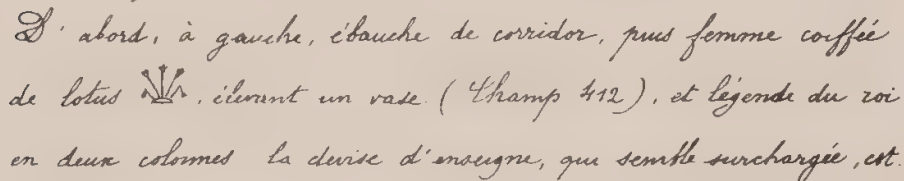 D'abord, à gauche, ébauche de corridor, puis femme coiffée
de lotus , élevant un vase (Champ 412), et légende du roi
en deux colonnes la devise d'enseigne, qui semble surchargée, est